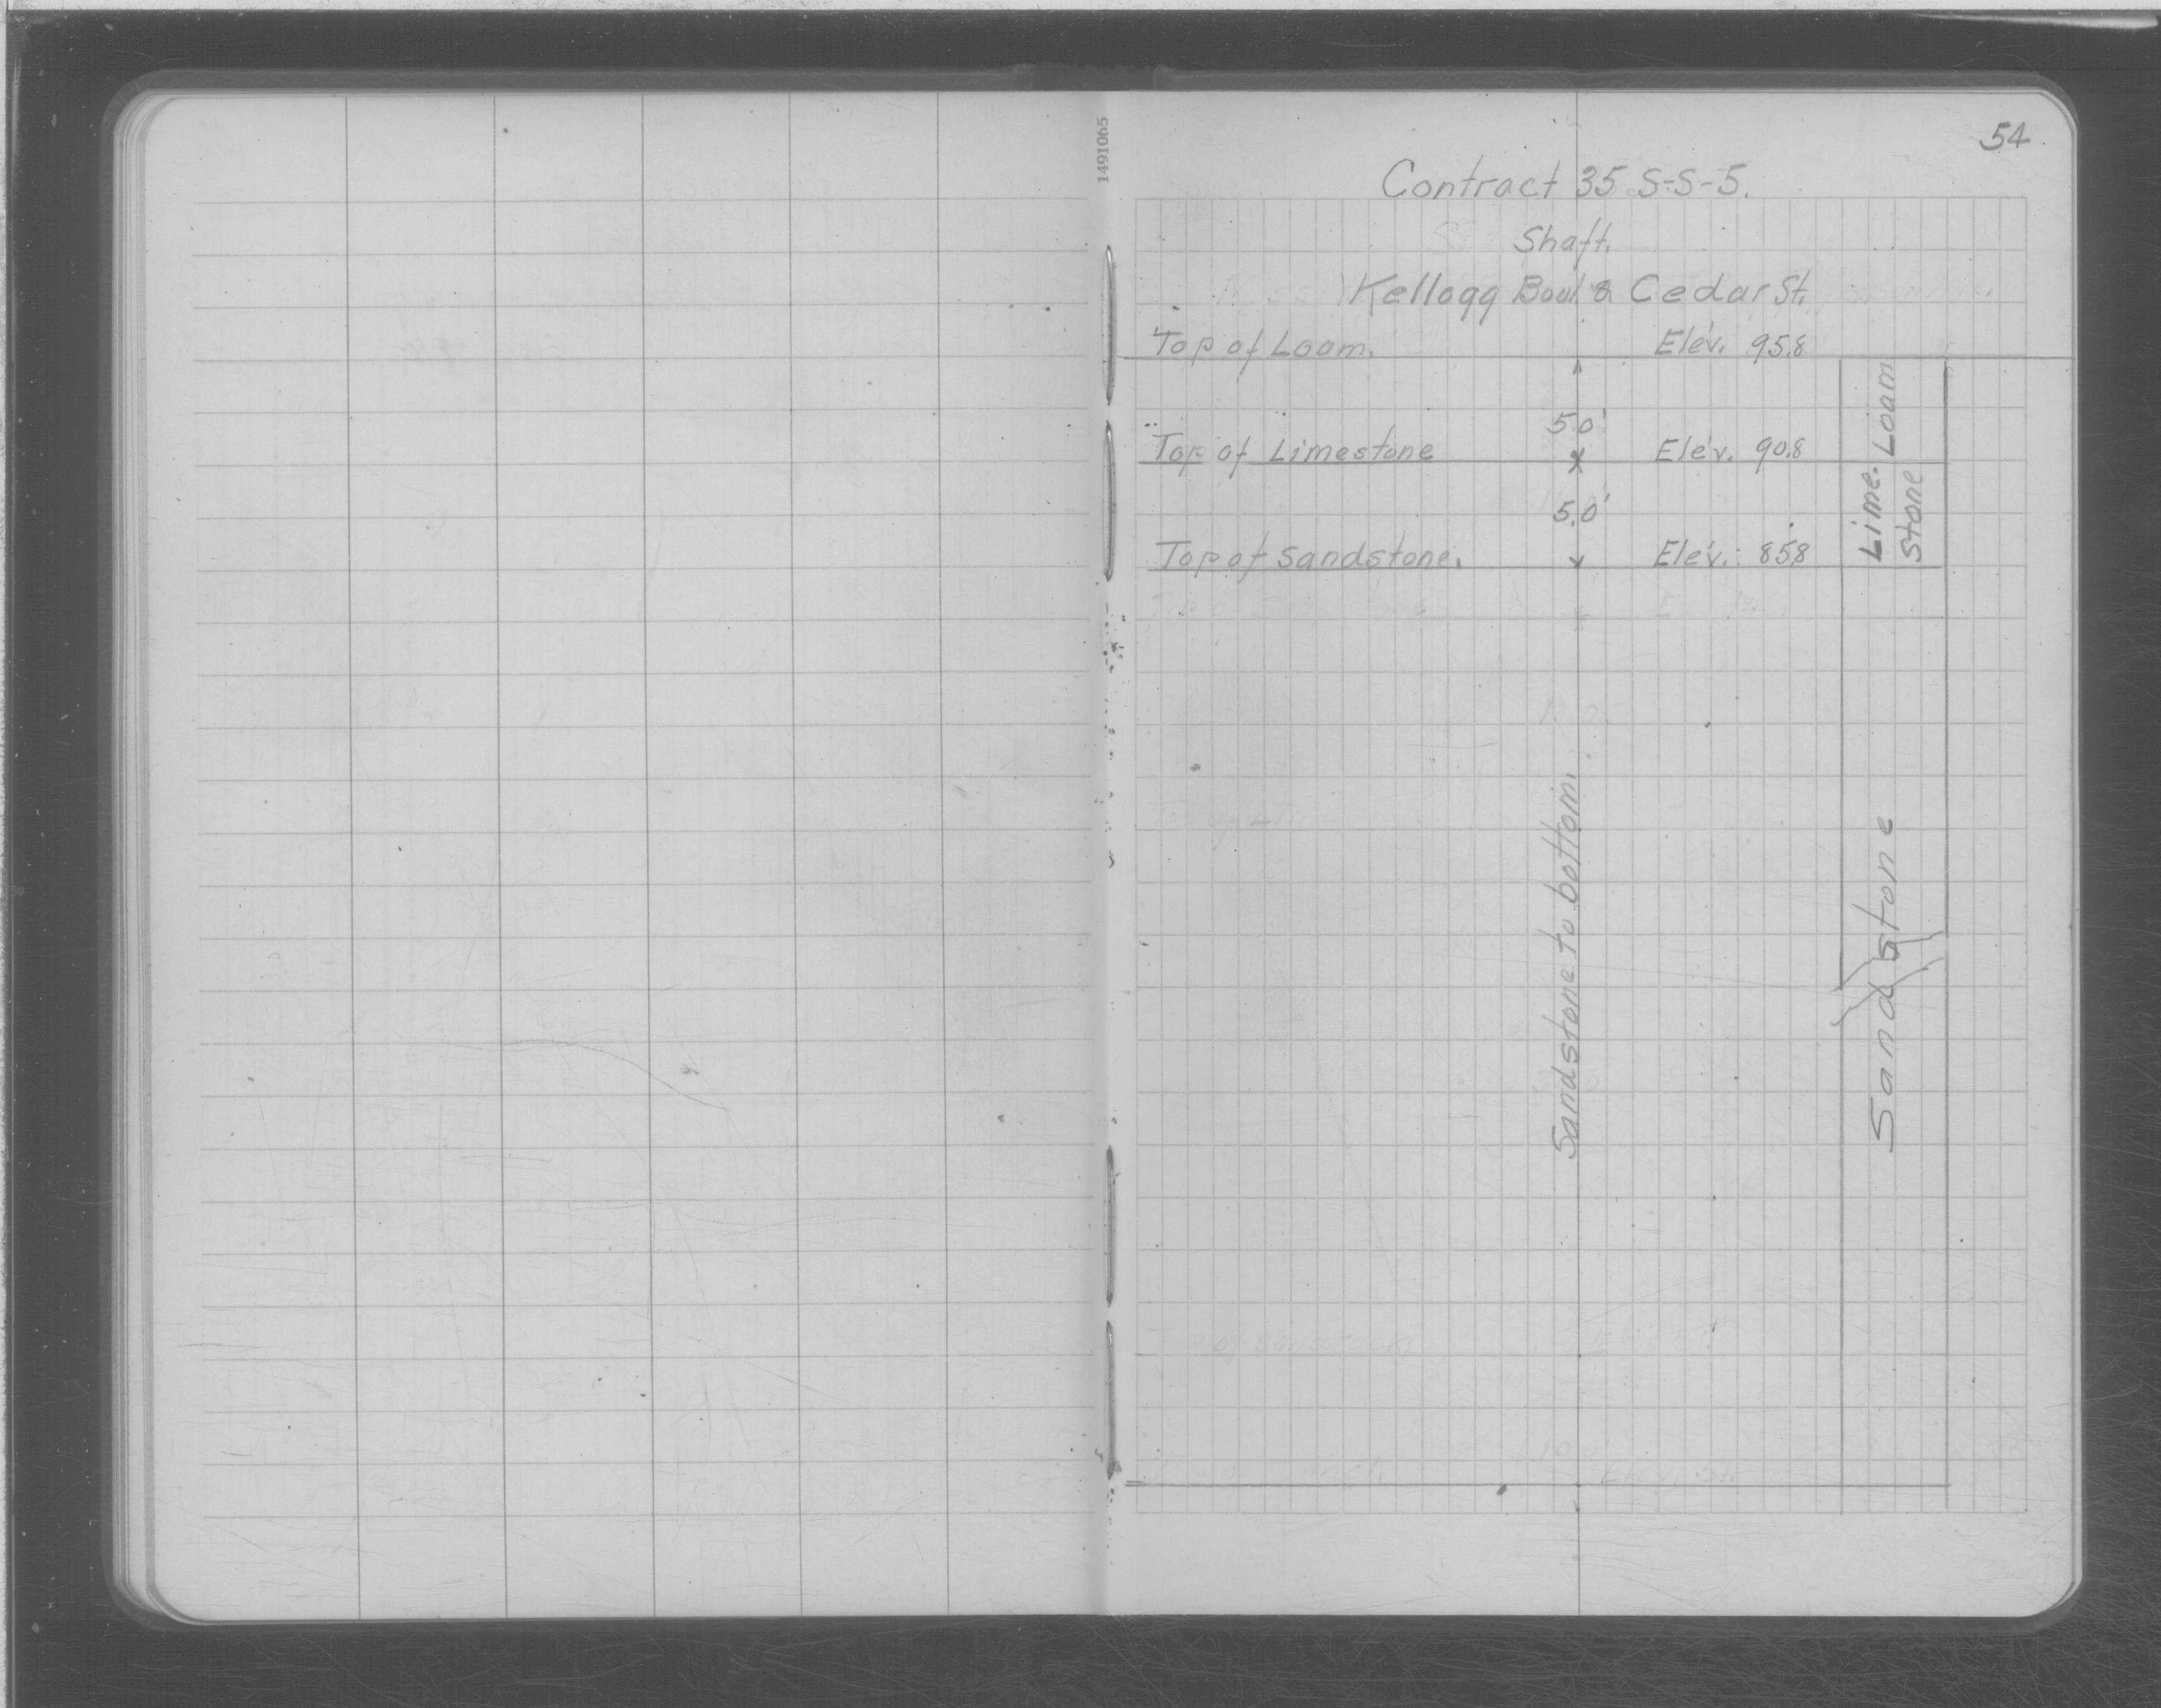 1491065
54
Contract 35 S-S-5.
Shaft.
Kellogg Boul & Cedar St.
Top of Loam. Elev. 95.8
5.0'
Top of Limestone Elev. 90.8
5.0'
Top of Sandstone. Elev. 85.8
Loam
Lime-
stone
Sandstone to bottom.
Sandstone